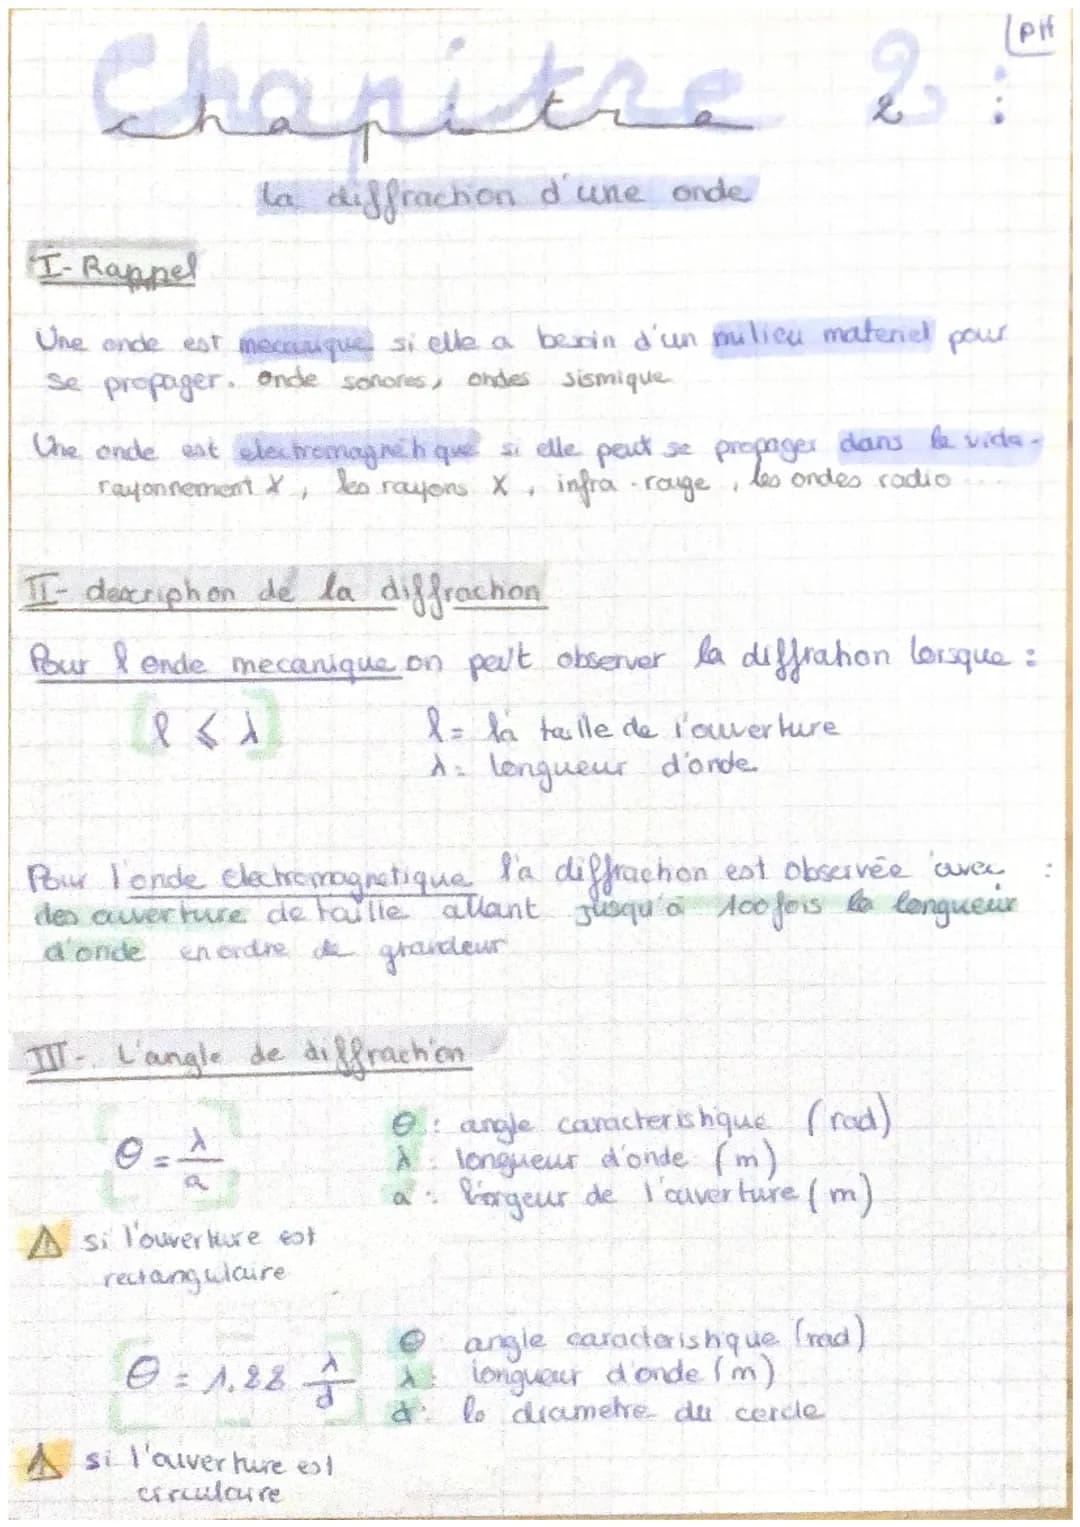 PH
Chapitre 2 :
La diffraction d'une onde
I- Rappel
Une onde est mecanique si elle a besoin d'un milieu materiel pour
se propager. onde sonores, ondes sismique
Une onde est electromagnétique si elle peut se propager dans le vide.
rayonnement X, les rayons X, infra-rouge, les ondes radio ...
II- description de la diffraction
Pour l'onde mecanique on peut observer la diffration lorsque :
l ⩽ λ
l = la taille de l'ouverture
λ = longueur d'onde
Pour l'onde electromagnetique la diffraction est observée avec :
des ouverture de taille allant jusqu'à 100 fois la longueur
d'onde en ordre de grandeur
III-. L'angle de diffraction
θ = λ/a
θ : angle caracteristique (rad)
λ : longueur d'onde (m)
a : largeur de l'ouverture (m)
⚠ si l'ouverture est
rectangulaire
θ = 1.22 λ/d
θ angle caracteristique (rad)
λ : longueur d'onde (m)
d : le diametre du cercle
⚠ si l'ouverture est
circulaire